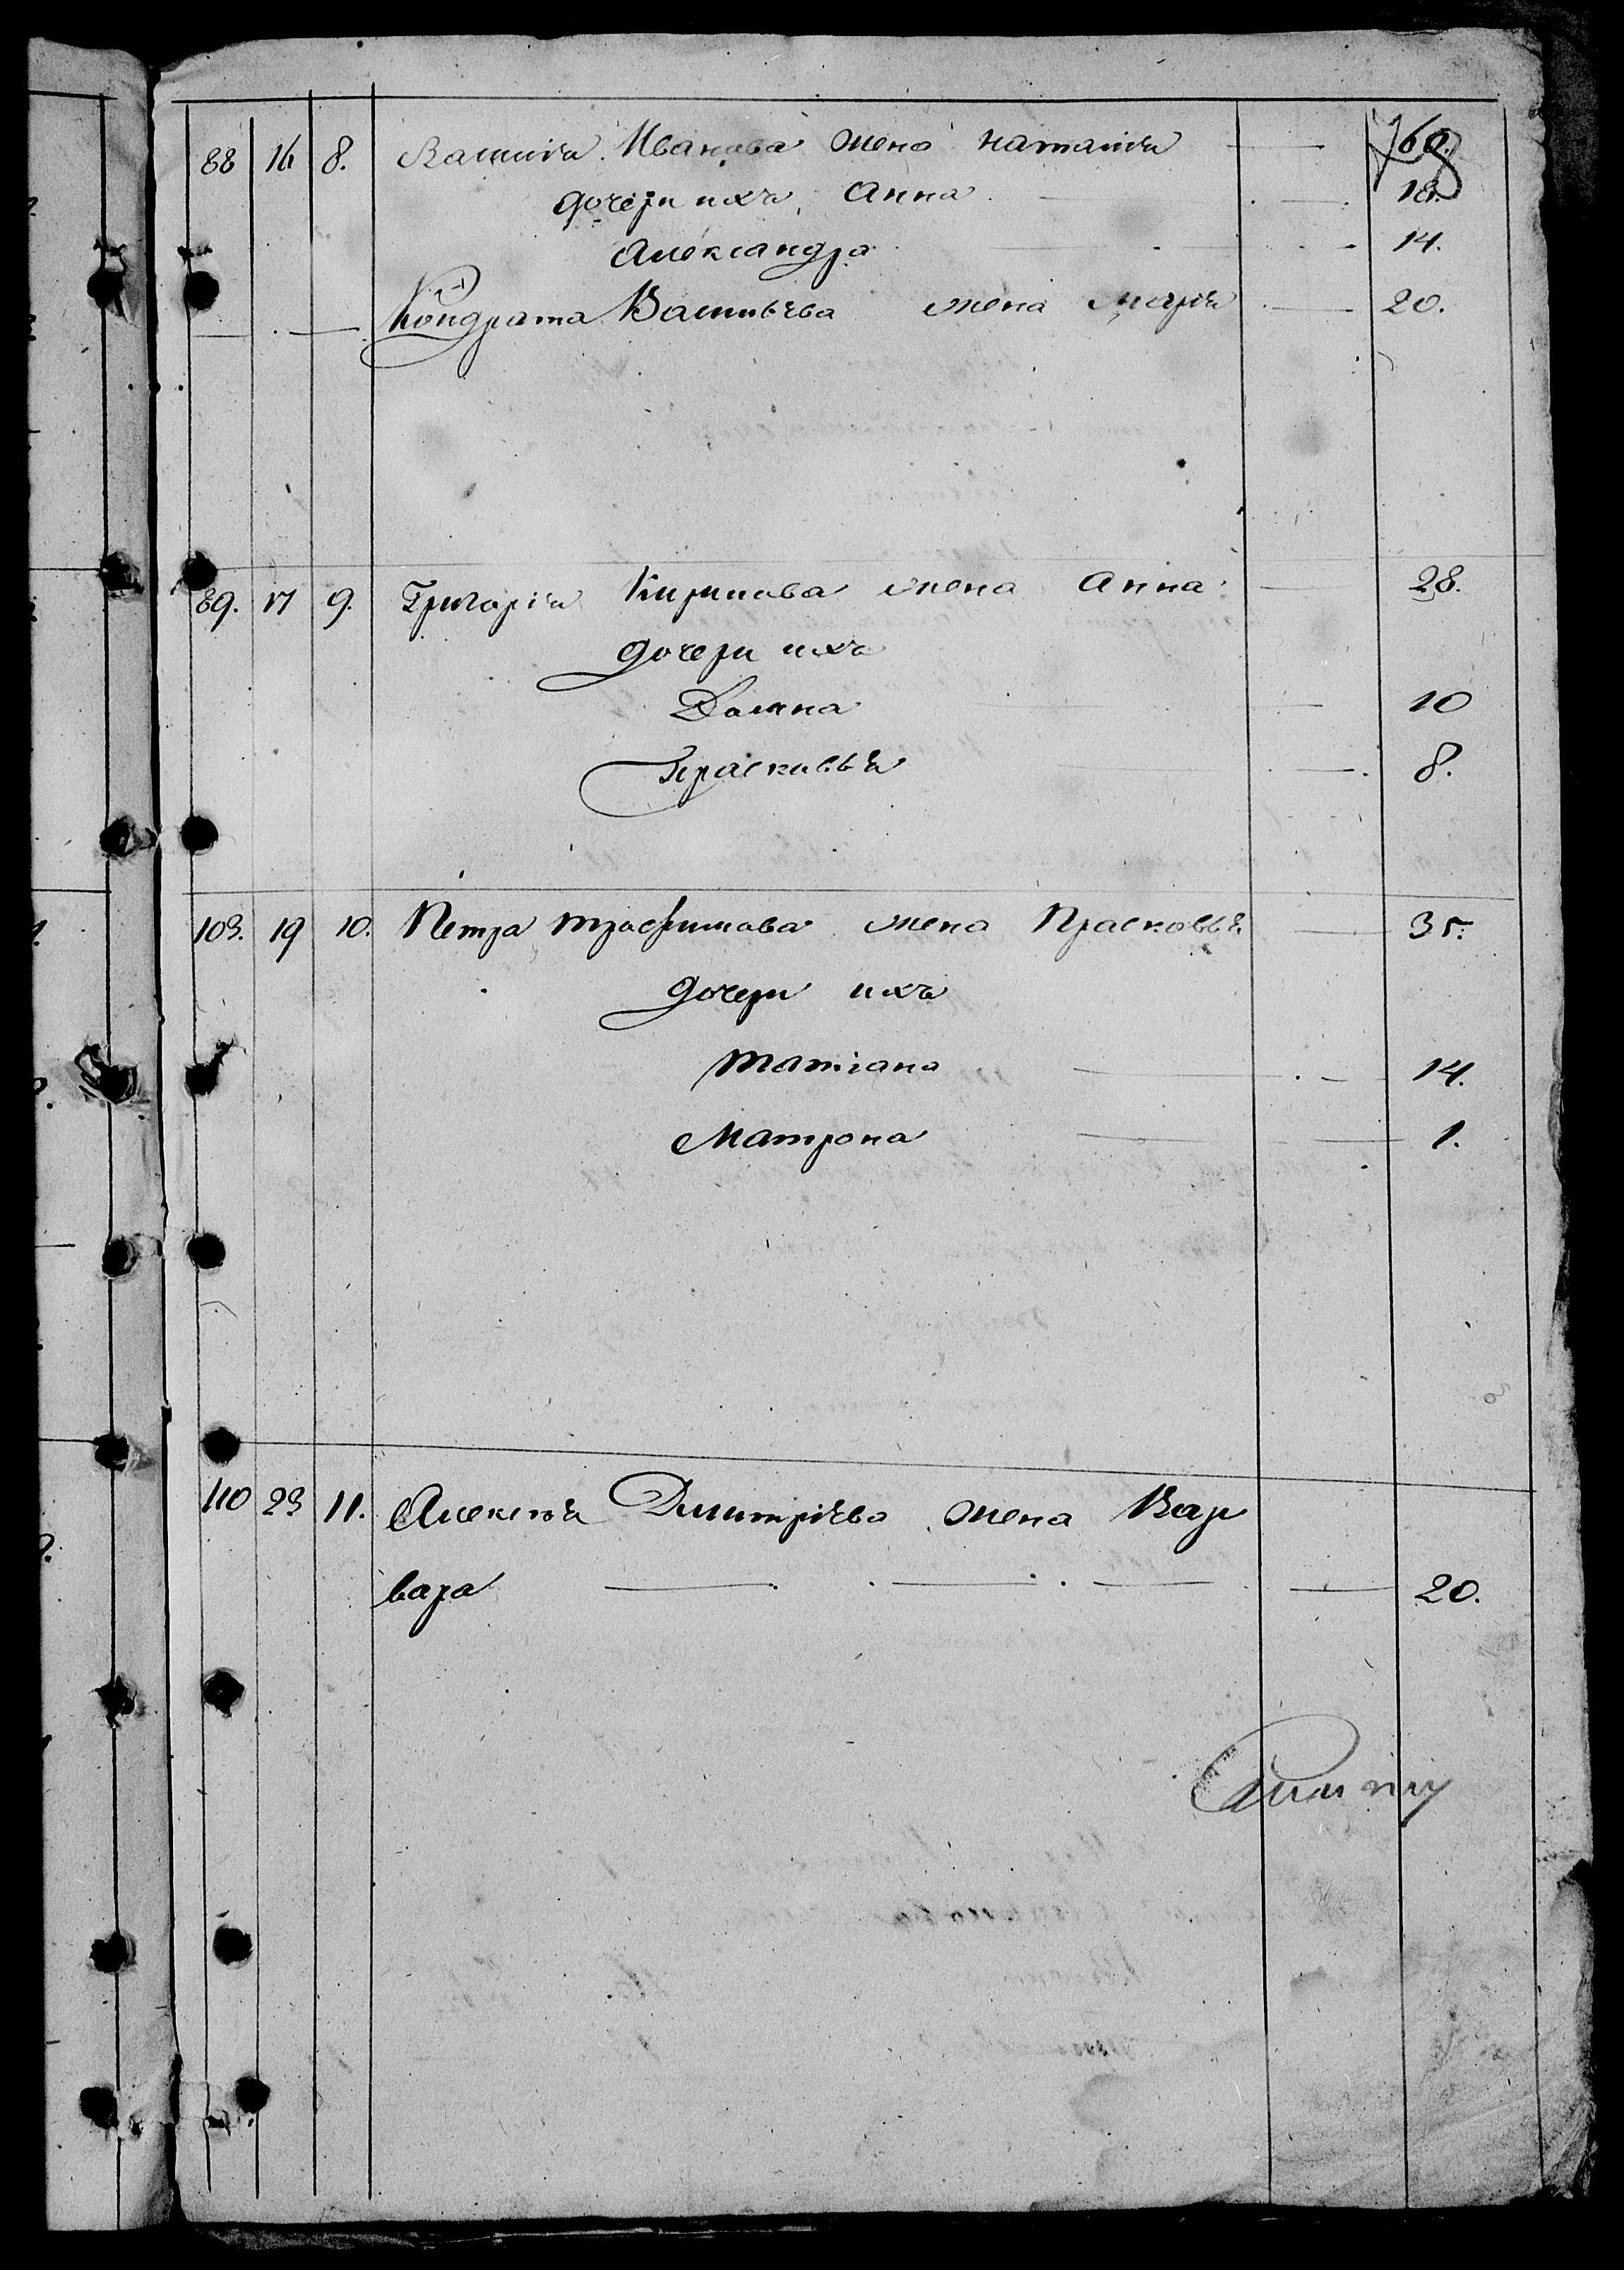 88 16 8. Василія Иванова жена Наталія
дочери ихъ Анна 18.
Александра 14.
Кондрата Васильева жена Марія 20.
89. 17 9. Григорія Кирилова жена Анна 28.
дочери ихъ
Домна 10
Прасковья 8.
103. 19 10. Петра Трофимова жена Прасковья 35.
дочери ихъ
Татіана 14.
Матрона 1.
110 23 11. Алексѣя Дмитріева жена Вар
вара 20.